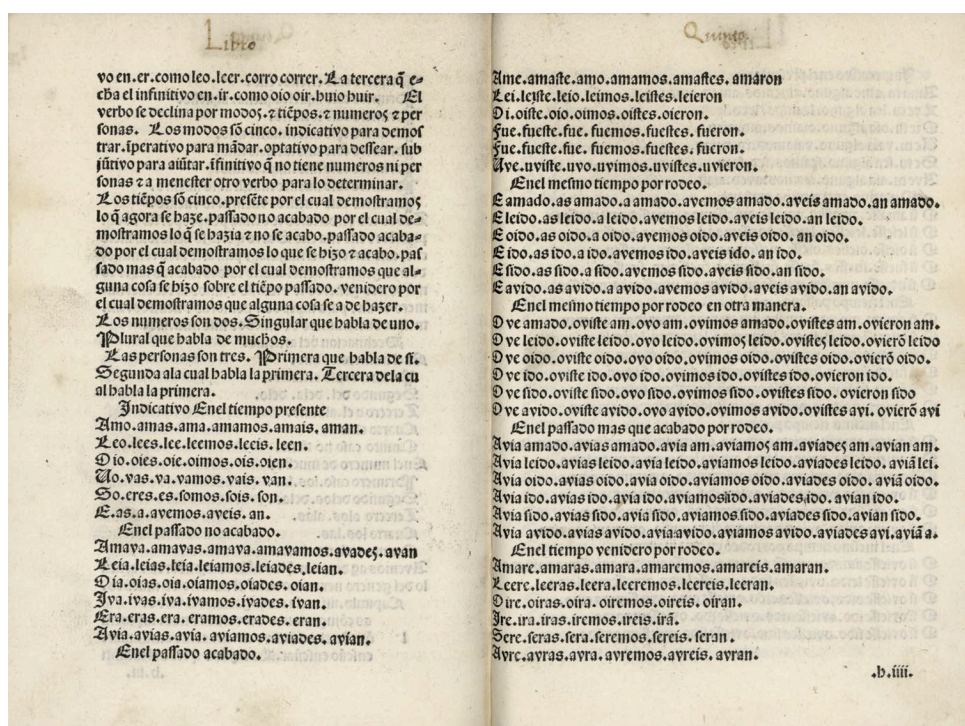 Libro
vo en.er.como leo.leer.corro correr. La tercera q̃ e-
cha el infinitivo en.ir.como oio oir.huio huir. El
verbo se declina por modos.⁊ tiẽpos.⁊ numeros ⁊ per
sonas. Los modos sõ cinco.indicativo para demos
trar.ĩperativo para mãdar.optativo para dessear.sub
jũtivo para aiũtar.ĩfinitivo q̃ no tiene numeros ni per
sonas ⁊ a menester otro verbo para lo determinar.
Los tiẽpos sõ cinco.presẽte por el cual demostramos
lo q̃ agora se haze.passado no acabado por el cual de-
mostramos lo q̃ se hazia ⁊ no se acabo.passado acaba-
do por el cual demostramos lo que se hizo ⁊ acabo.pas
sado mas q̃ acabado por el cual demostramos que al-
guna cosa se hizo sobre el tiẽpo passado. venidero por
el cual demostramos que alguna cosa se a de hazer.
Los numeros son dos. Singular que habla de uno.
Plural que habla de muchos.
Las personas son tres. Primera que habla de si.
Segunda ala cual habla la primera. Tercera dela cu
al habla la primera.
Indicativo Enel tiempo presente
Amo.amas.ama.amamos.amais.aman.
Leo.lees.lee.leemos.leeis.leen.
Oio.oies.oie.oimos.ois.oien.
Vo.vas.va.vamos.vais.van.
So.eres.es.somos.sois.son.
E.as.a.avemos.aveis.an.
Enel passado no acabado.
Amava.amavas.amava.amavamos.avades.avan
Leia.leias.leia.leiamos.leiades.leian.
Oia.oias.oia.oiamos.oiades.oian.
Iva.ivas.iva.ivamos.ivades.ivan.
Era.eras.era.eramos.erades.eran.
Avia.avias.avia.aviamos.aviades.avian.
Enel passado acabado.
Quinto.
Ame.amaste.amo.amamos.amastes.amaron
Lei.leiste.leio.leimos.leistes.leieron
Oi.oiste.oio.oimos.oistes.oieron.
Fue.fueste.fue.fuemos.fuestes.fueron.
Fue.fueste.fue.fuemos.fuestes.fueron.
Uve.uviste.uvo.uvimos.uvistes.uvieron.
Enel mesmo tiempo por rodeo.
E amado.as amado.a amado.avemos amado.aveis amado.an amado.
E leido.as leido.a leido.avemos leido.aveis leido.an leido.
E oido.as oido.a oido.avemos oido.aveis oido.an oido.
E ido.as ido.a ido.avemos ido.aveis ido.an ido.
E sido.as sido.a sido.avemos sido.aveis sido.an sido.
E avido.as avido.a avido.avemos avido.aveis avido.an avido.
Enel mesmo tiempo por rodeo en otra manera.
Ove amado.oviste am.ovo am.ovimos amado.ovistes am.ovieron am.
Ove leido.oviste leido.ovo leido.ovimos leido.ovistes leido.ovierõ leido
Ove oido.oviste oido.ovo oido.ovimos oido.ovistes oido.ovierõ oido.
Ove ido.oviste ido.ovo ido.ovimos ido.ovistes ido.ovieron ido.
Ove sido.oviste sido.ovo sido.ovimos sido.ovistes sido.ovieron sido
Ove avido.oviste avido.ovo avido.ovimos avido.ovistes avi.ovierõ avi
Enel passado mas que acabado por rodeo.
Avia amado.avias amado.avia am.aviamos am.aviades am.avian am.
Avia leido.avias leido.avia leido.aviamos leido.aviades leido.aviã lei.
Avia oido.avias oido.avia oido.aviamos oido.aviades oido.aviã oido.
Avia ido.avias ido.avia ido.aviamos ido.aviades ido.avian ido.
Avia sido.avias sido.avia sido.aviamos sido.aviades sido.avian sido.
Avia avido.avias avido.avia avido.aviamos avido.aviades avi.aviã a.
Enel tiempo venidero por rodeo.
Amare.amaras.amara.amaremos.amareis.amaran.
Leere.leeras.leera.leeremos.leereis.leeran.
Oire.oiras.oira.oiremos.oireis.oiran.
Ire.ira.iras.iremos.ireis.irã.
Sere.seras.sera.seremos.sereis.seran.
Avre.avras.avra.avremos.avreis.avran.
.b.iiii.